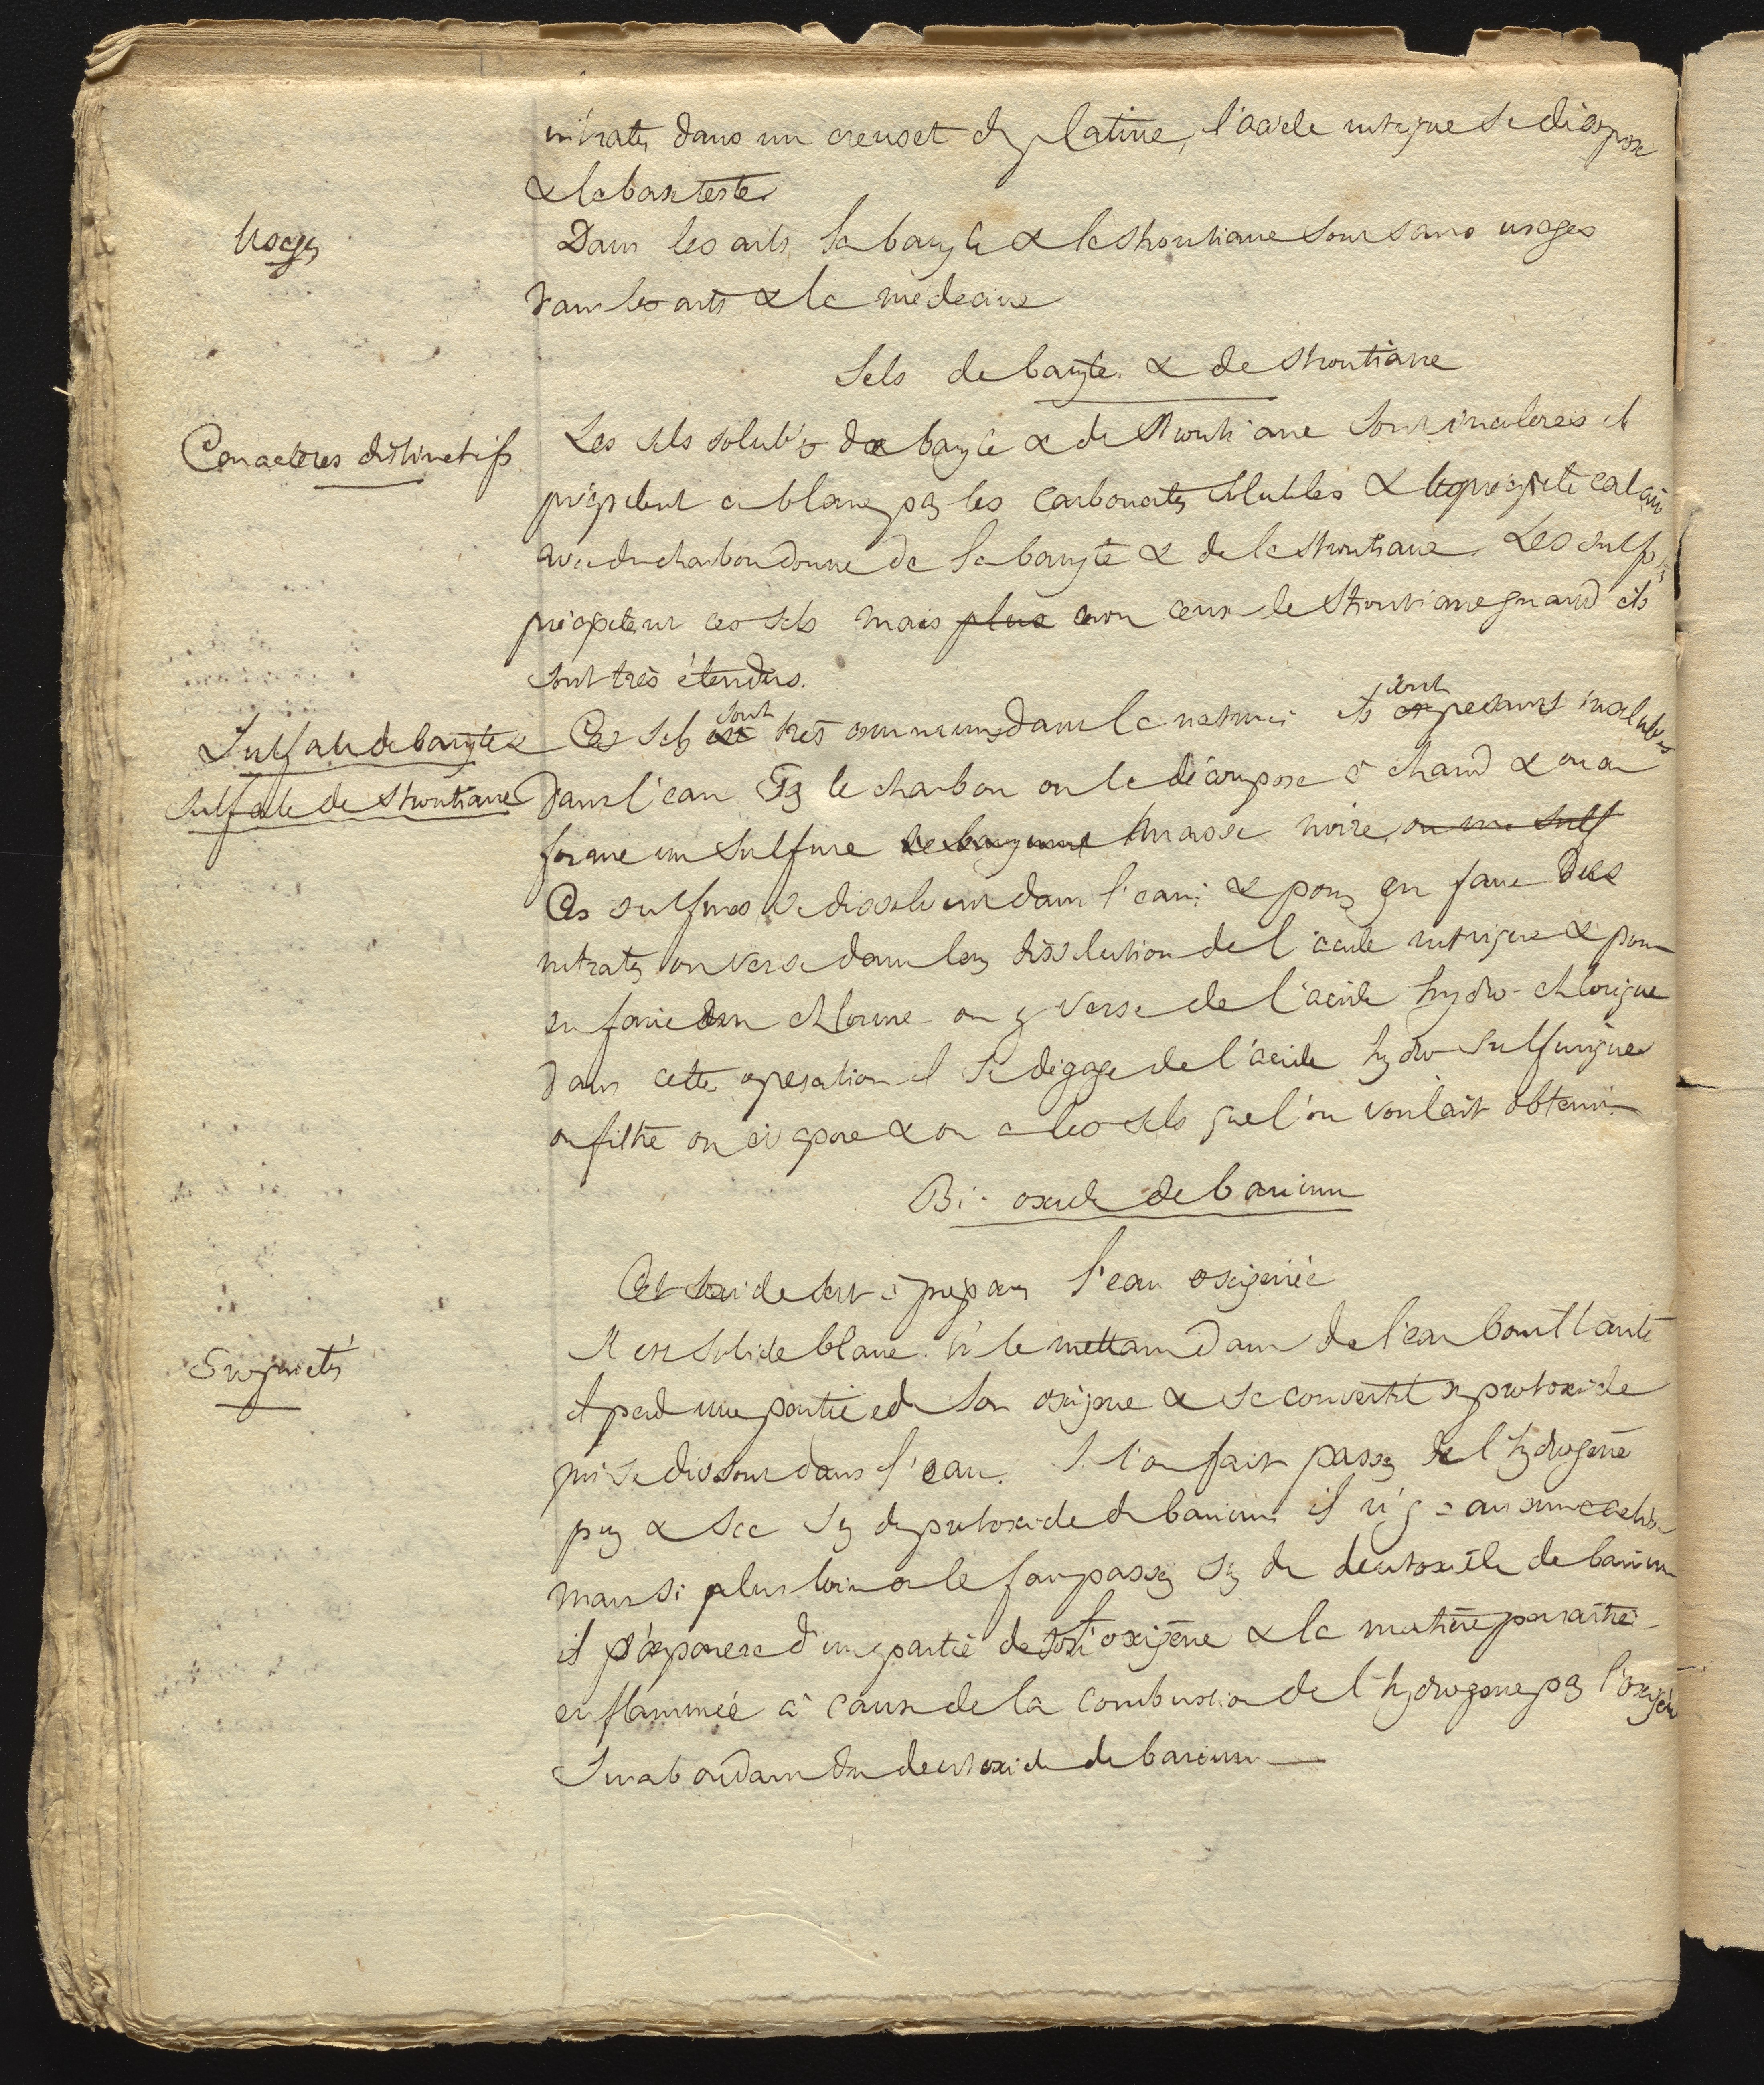 nitrates dans un creuset de platine, l'acide nitrique se décompose
& la base reste
Usages
Dans les arts la baryte & la strontiane sont sans usages
dans les arts & la médecine
Sels de baryte & de strontiane
Caracteres distinctifs
Les sels solubles de baryte & de strontiane sont incolores et
précipitent en blanc par les carbonates solubles & le précipité calciné
avec du charbon donne de la baryte & de la strontiane. Les sulf
précipitent ces sels mais plus non ceux de strontiane quand ils
sont très étendus.
Sulfate de baryte &
sulfate de strontiane
Ces sels sont très communs dans la nature ils sont pesants insolubles
dans l'eau Par le charbon on le décompose à chaud & on en
forme un sulfure de baryum masse noire, ou un sulf
Ces sulfures se dissolvent dans l'eau; & pour en faire des
nitrates on verse dans leur dissolution de l'acide nitrique & pour
en faire un chlorure on y verse de l'acide hydro-chlorique
dans cette operation il se dégage de l'acide hydro-sulfurique
on filtre on évapore & on a les sels que l'on voulait obtenir
Bi-oxide de barium
Cet oxide sert à préparer l'eau oxigenée
Propriétés
Il est solide blanc. En le mettant dans de l'eau bouillante
il perd une partie de son oxigene & se convertit en protoxide
qui se dissout dans l'eau. Si l'on fait passer de l'hydrogène
pur & sec sur du protoxide de barium il n'y a aucune action
mais si plus loin on le fait passer sur du deutoxide de barium
il s'emparera d'une partie de son oxigène & la matière paraître
enflammée à cause de la combustion de l'hydrogene par l'oxigène
surabondant du deutoxide de barium